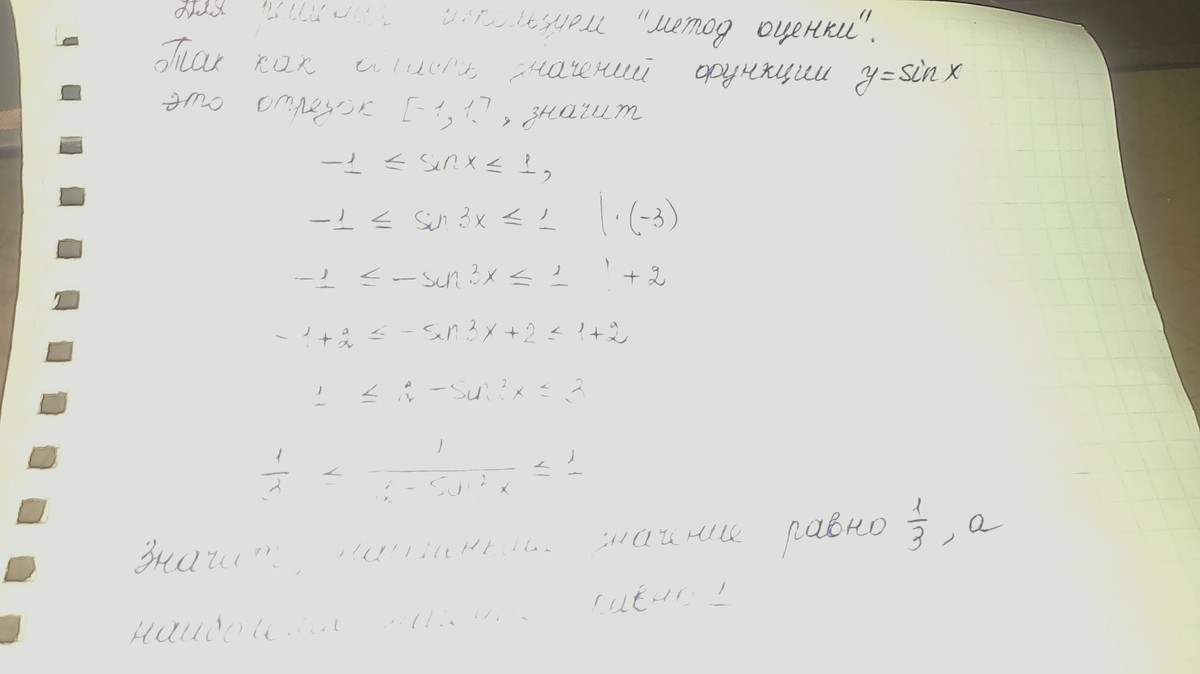 используем "метод оценки".
Так как область значений функции y=sin x
это отрезок [-1,1], значит
-1 ≤ sin x ≤ 1,
-1 ≤ sin 3x ≤ 1 | · (-3)
-1 ≤ - sin 3x ≤ 1 | + 2
-1+2 ≤ - sin 3x + 2 ≤ 1+2
1 ≤ 2 - sin 3x ≤ 3
1/3 ≤ 1/(2 - sin 3x) ≤ 1
Значит, значение равно 1/3, а
равно 1